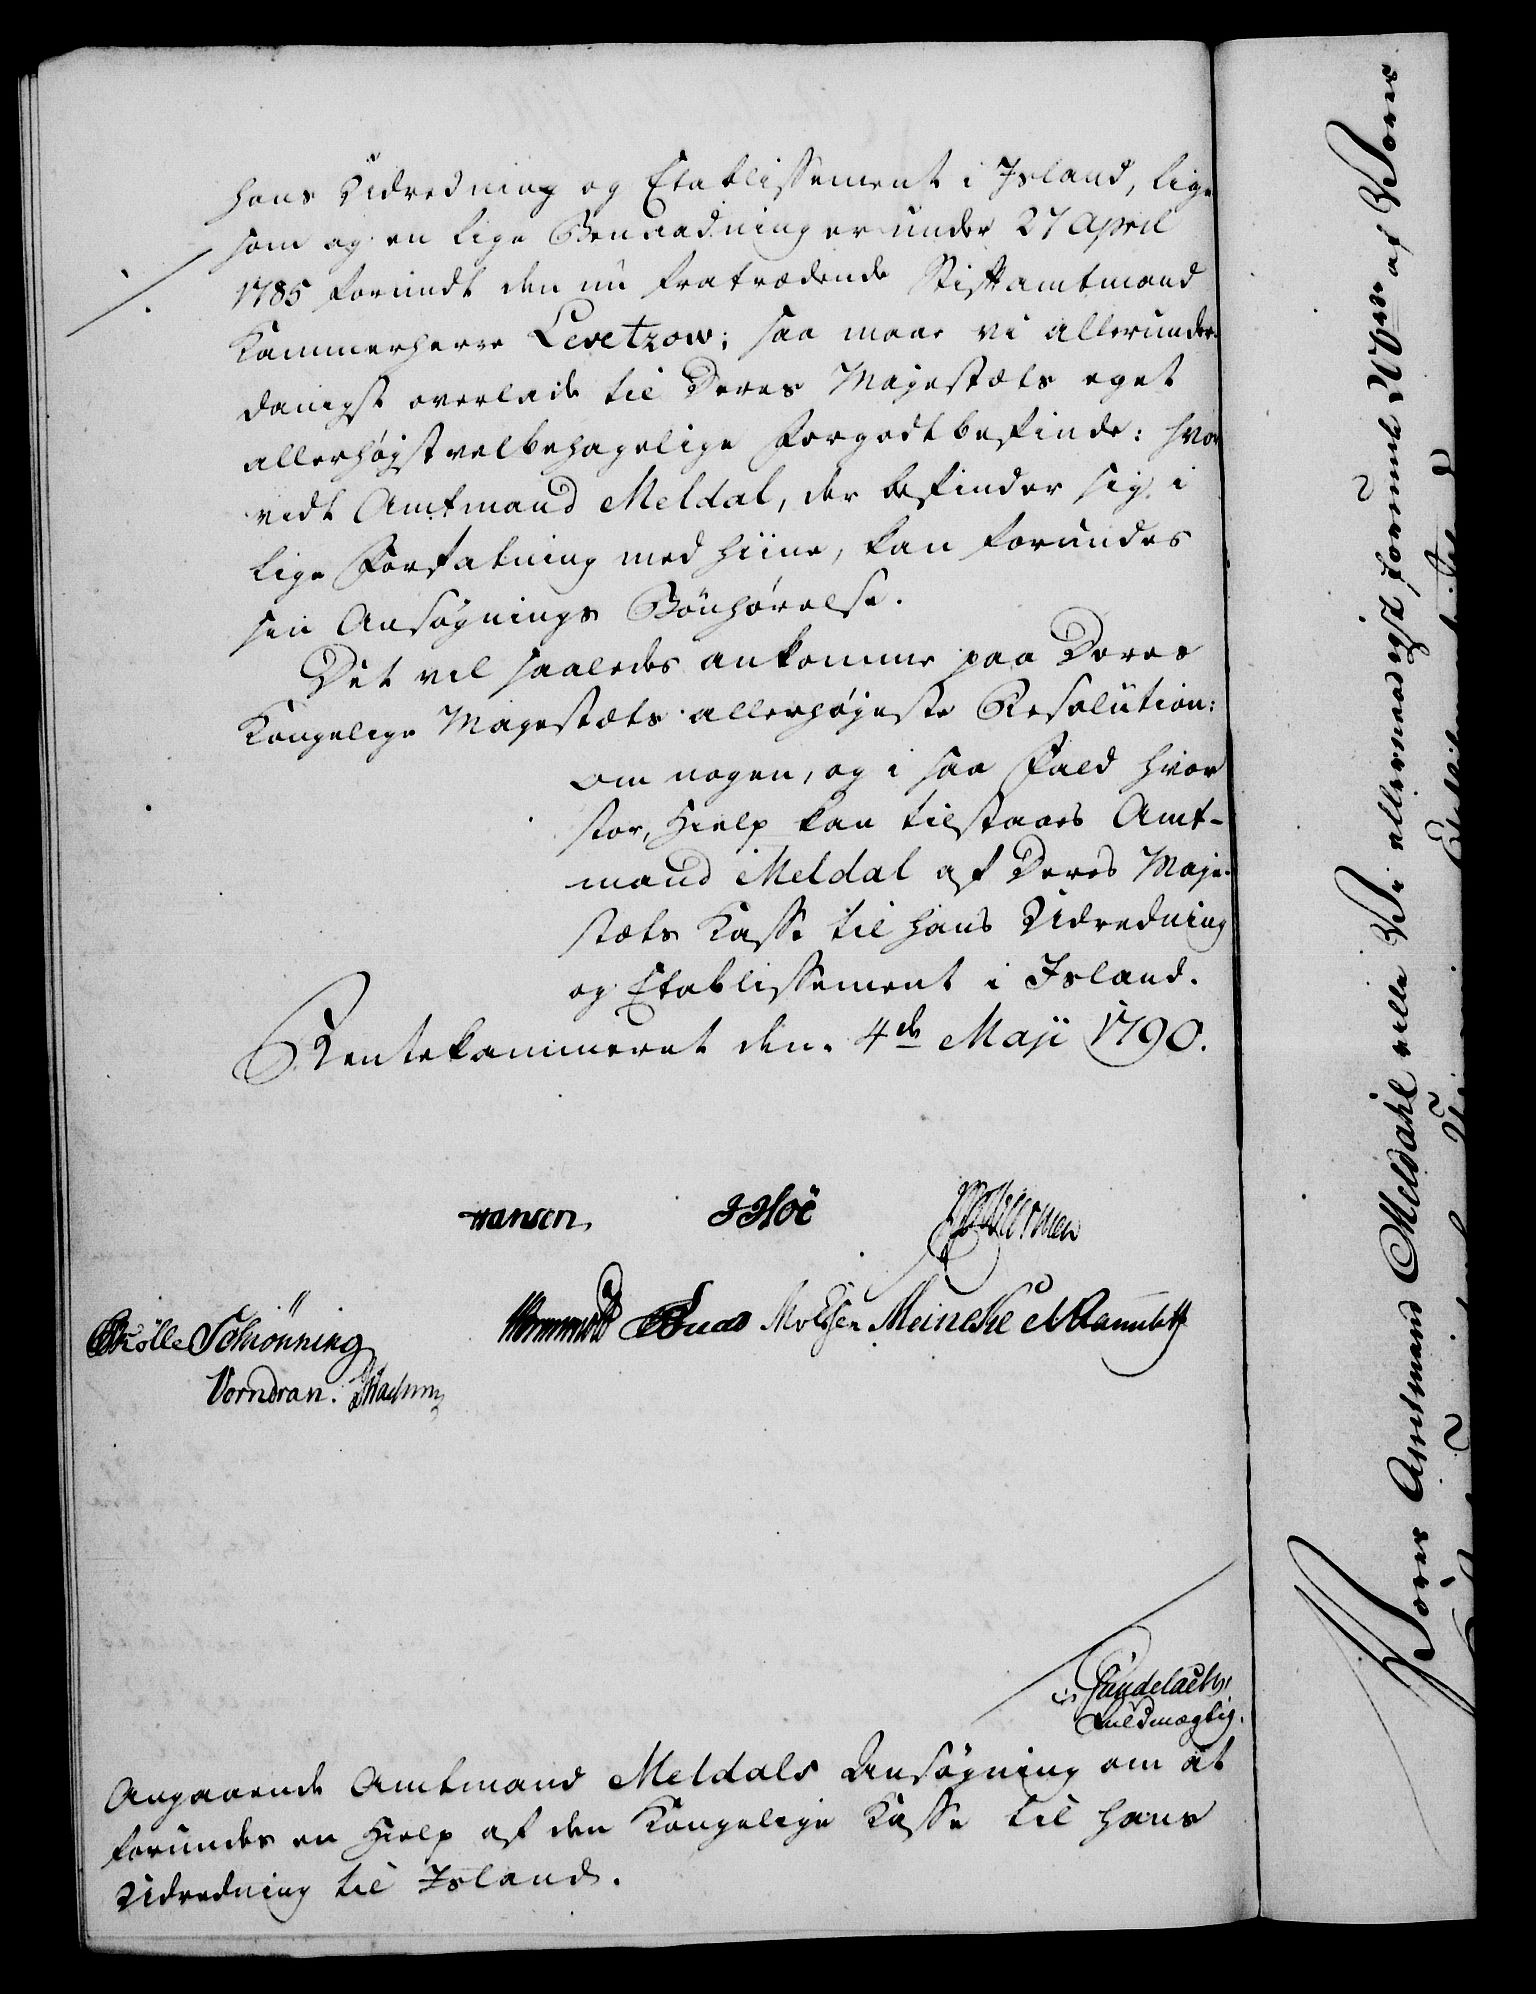 hans Udredning og Etablissement i Island, lige
som og en lige Benaadning er under 27 April
1785 forundt den nu fratrædende Stiftamtmand
Kammerherre Levetzow; saa maae vi allerunder-
danigst overlade til Deres Majestæts eget
allerhøjstvelbehagelige Forgodtbefinde: hvor
vidt Amtmand Meldal, der befinder sig i
lige Forfatning med hiine, kan forundes
sin Ansøgnings Bönhørelse.
Det vil saaledes ankomme paa Deres
Kongelige Majestæts allerhøjeste Resolution:
om nogen, og i saa Fald hvor
stor, Hielp kan tilstaaes Amt-
mand Meldal af Deres Maje-
stæts Kasse til hans Udredning
og Etablissement i Island.
Rentekammeret den 4de Maji 1790.
Hansen J Hoë
Schiönning Meinche
Vorndran.
Fuldmægtig.
Angaaende Amtmand Meldals Ansøgning om at
forundes en Hielp af den Kongelige Kasse til hans
Udredning til Island.
Vores Amtmand Meldahl ville Vi allernaadigst forunde af Vores